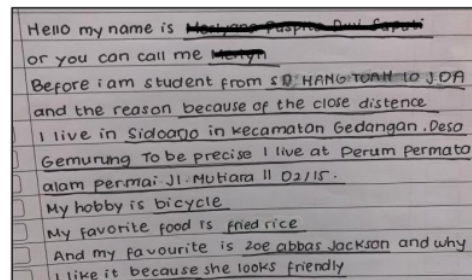 Hello my name is
or you can call me
Before i am student from SD HANG TUAH 10 JDA
and the reason because of the close distence
I live in Sidoarjo in kecamatan Gedangan. Desa
Gemurung To be precise I live at Perum Permata
alam permai Jl. Mutiara II 02/15.
My hobby is bicycle
My favorite food is fried rice
And my favourite is zoe abbas Jackson and why
I like it because she looks friendly